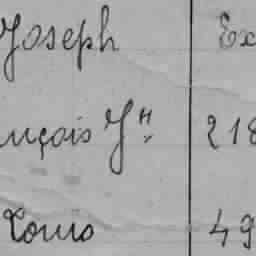 Joseph Ex
nçois Jh 218
Louis 49